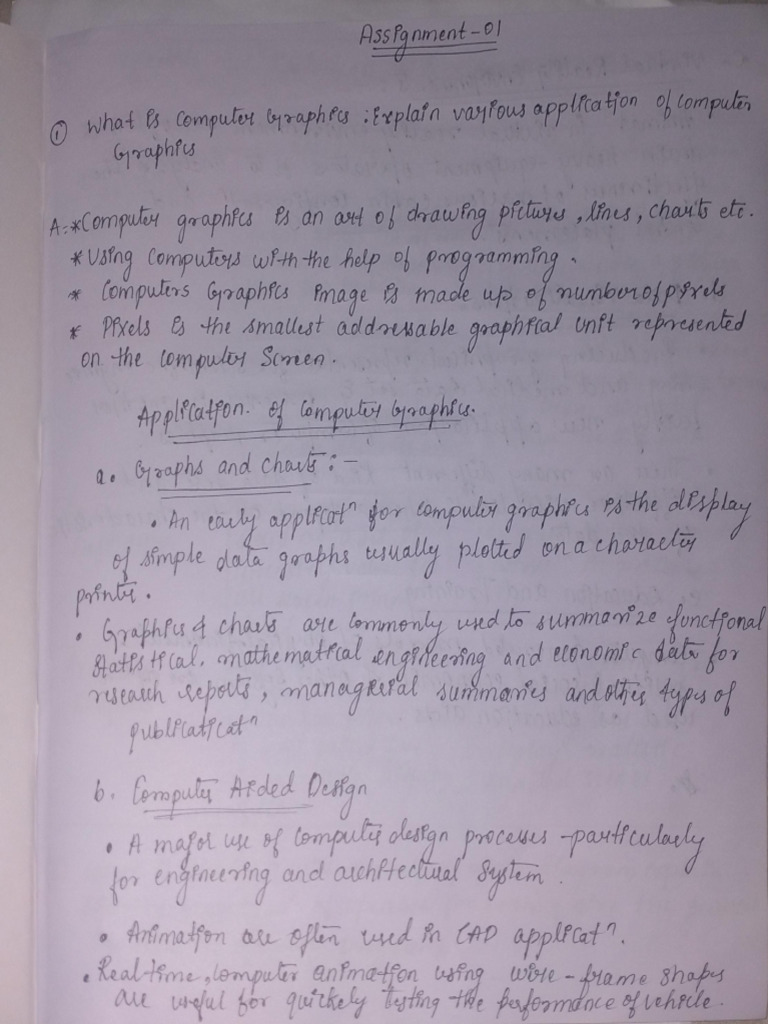 Assignment-01
① What is Computer Graphics ; Explain various application of computer
Graphics
A:- *Computer graphics is an art of drawing pictures, lines, charts etc.
* Using Computers with the help of programming.
* Computers Graphics image is made up of number of pixels
* Pixels is the smallest addressable graphical unit represented
on the computer Screen.
Application. of Computer Graphics.
a. Graphs and Charts :-
• An early applicatⁿ for computer graphics is the display
of simple data graphs usually plotted on a character
printer.
• Graphics & charts are commonly used to summarize functional
statistical, mathematical engineering and economic data for
research reports, managerial summaries and other types of
publicaticatⁿ
b. Computer Aided Design
• A major use of computer design processes - particularly
for engineering and architectural system.
• Animation are often used in CAD applicatⁿ.
• Real-time, computer animation using wire-frame shapes
are useful for quickely testing the performance of vehicle.